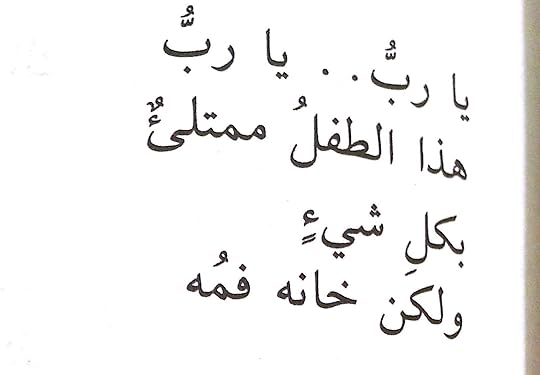 يا ربُّ.. يا ربُّ
هذا الطفلُ ممتلئٌ
بكلِ شيءٍ
ولكن خانه فمُه